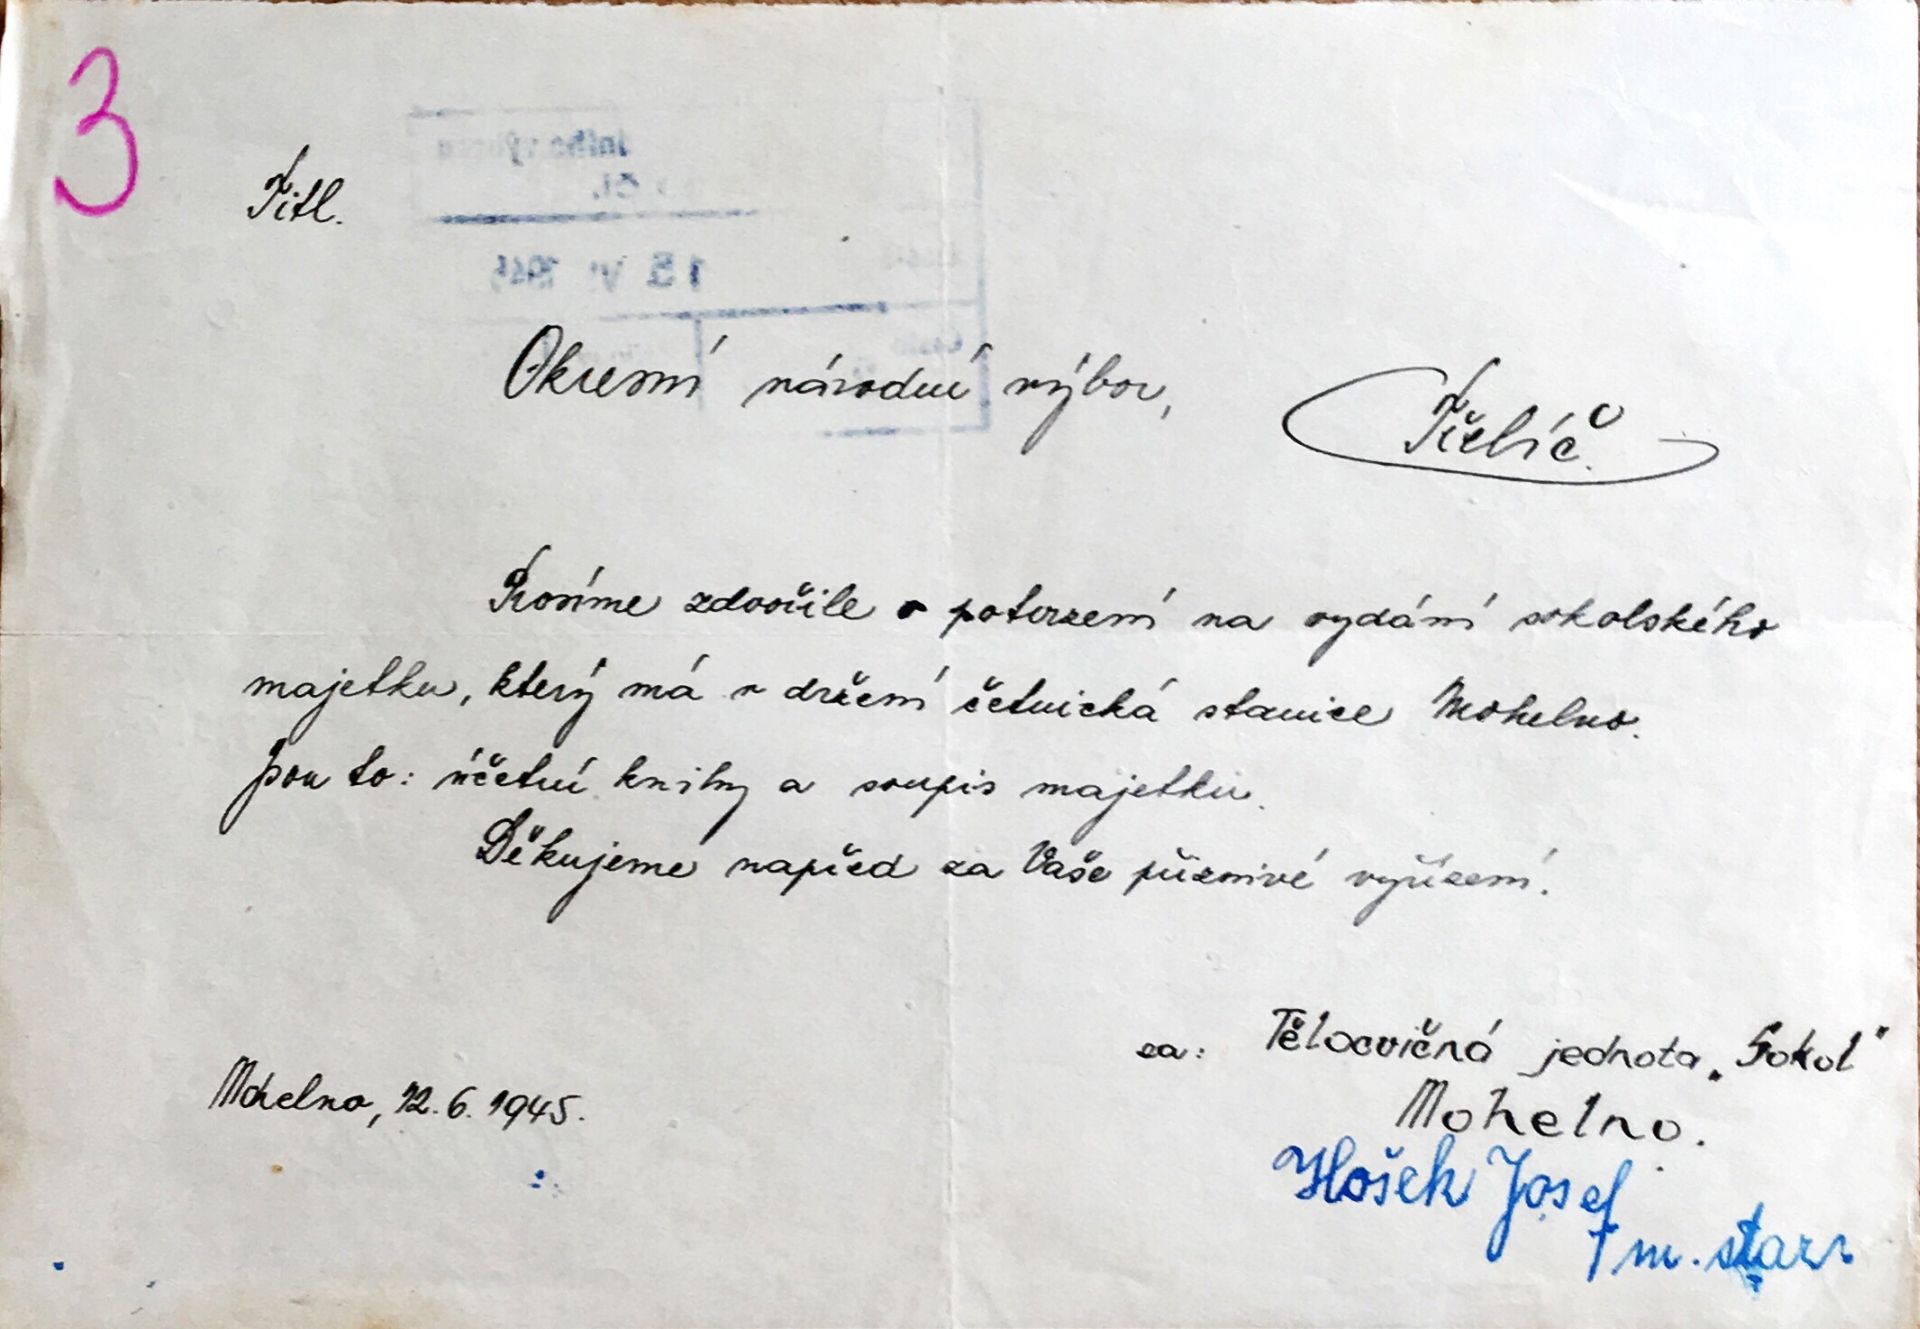 3
Titl.
Okresní národní výbor,
Třebíč.
Prosíme zdvořile o potvrzení na vydání sokolského
majetku, který má v držení četnická stanice Mohelno.
Jsou to: účetní knihy a soupis majetku.
Děkujeme napřed za Vaše příznivé vyřízení.
za: Tělocvičná jednota „Sokol"
Mohelno.
Mohelno, 12.6.1945.
Hošek Josef
m. star